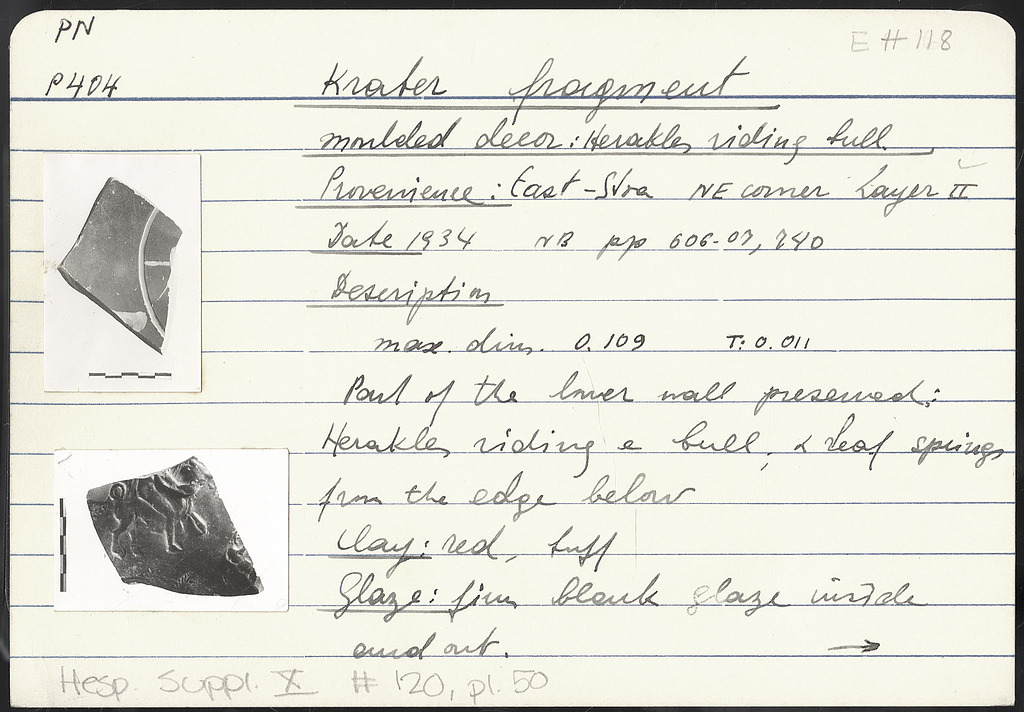 PN
E # 118
P404
Krater fragment
moulded decor: Herakles riding bull.
Provenience: East-Stoa NE corner Layer II
Date 1934 NB pp 606-07, 740
Description
max. dim. 0.109 T: 0.011
Part of the lower wall preserved:
Herakles riding a bull, & leaf springs
from the edge below
Clay: red, buff
Glaze: firm black glaze inside
and out. →
Hesp. Suppl. X # 120, pl. 50